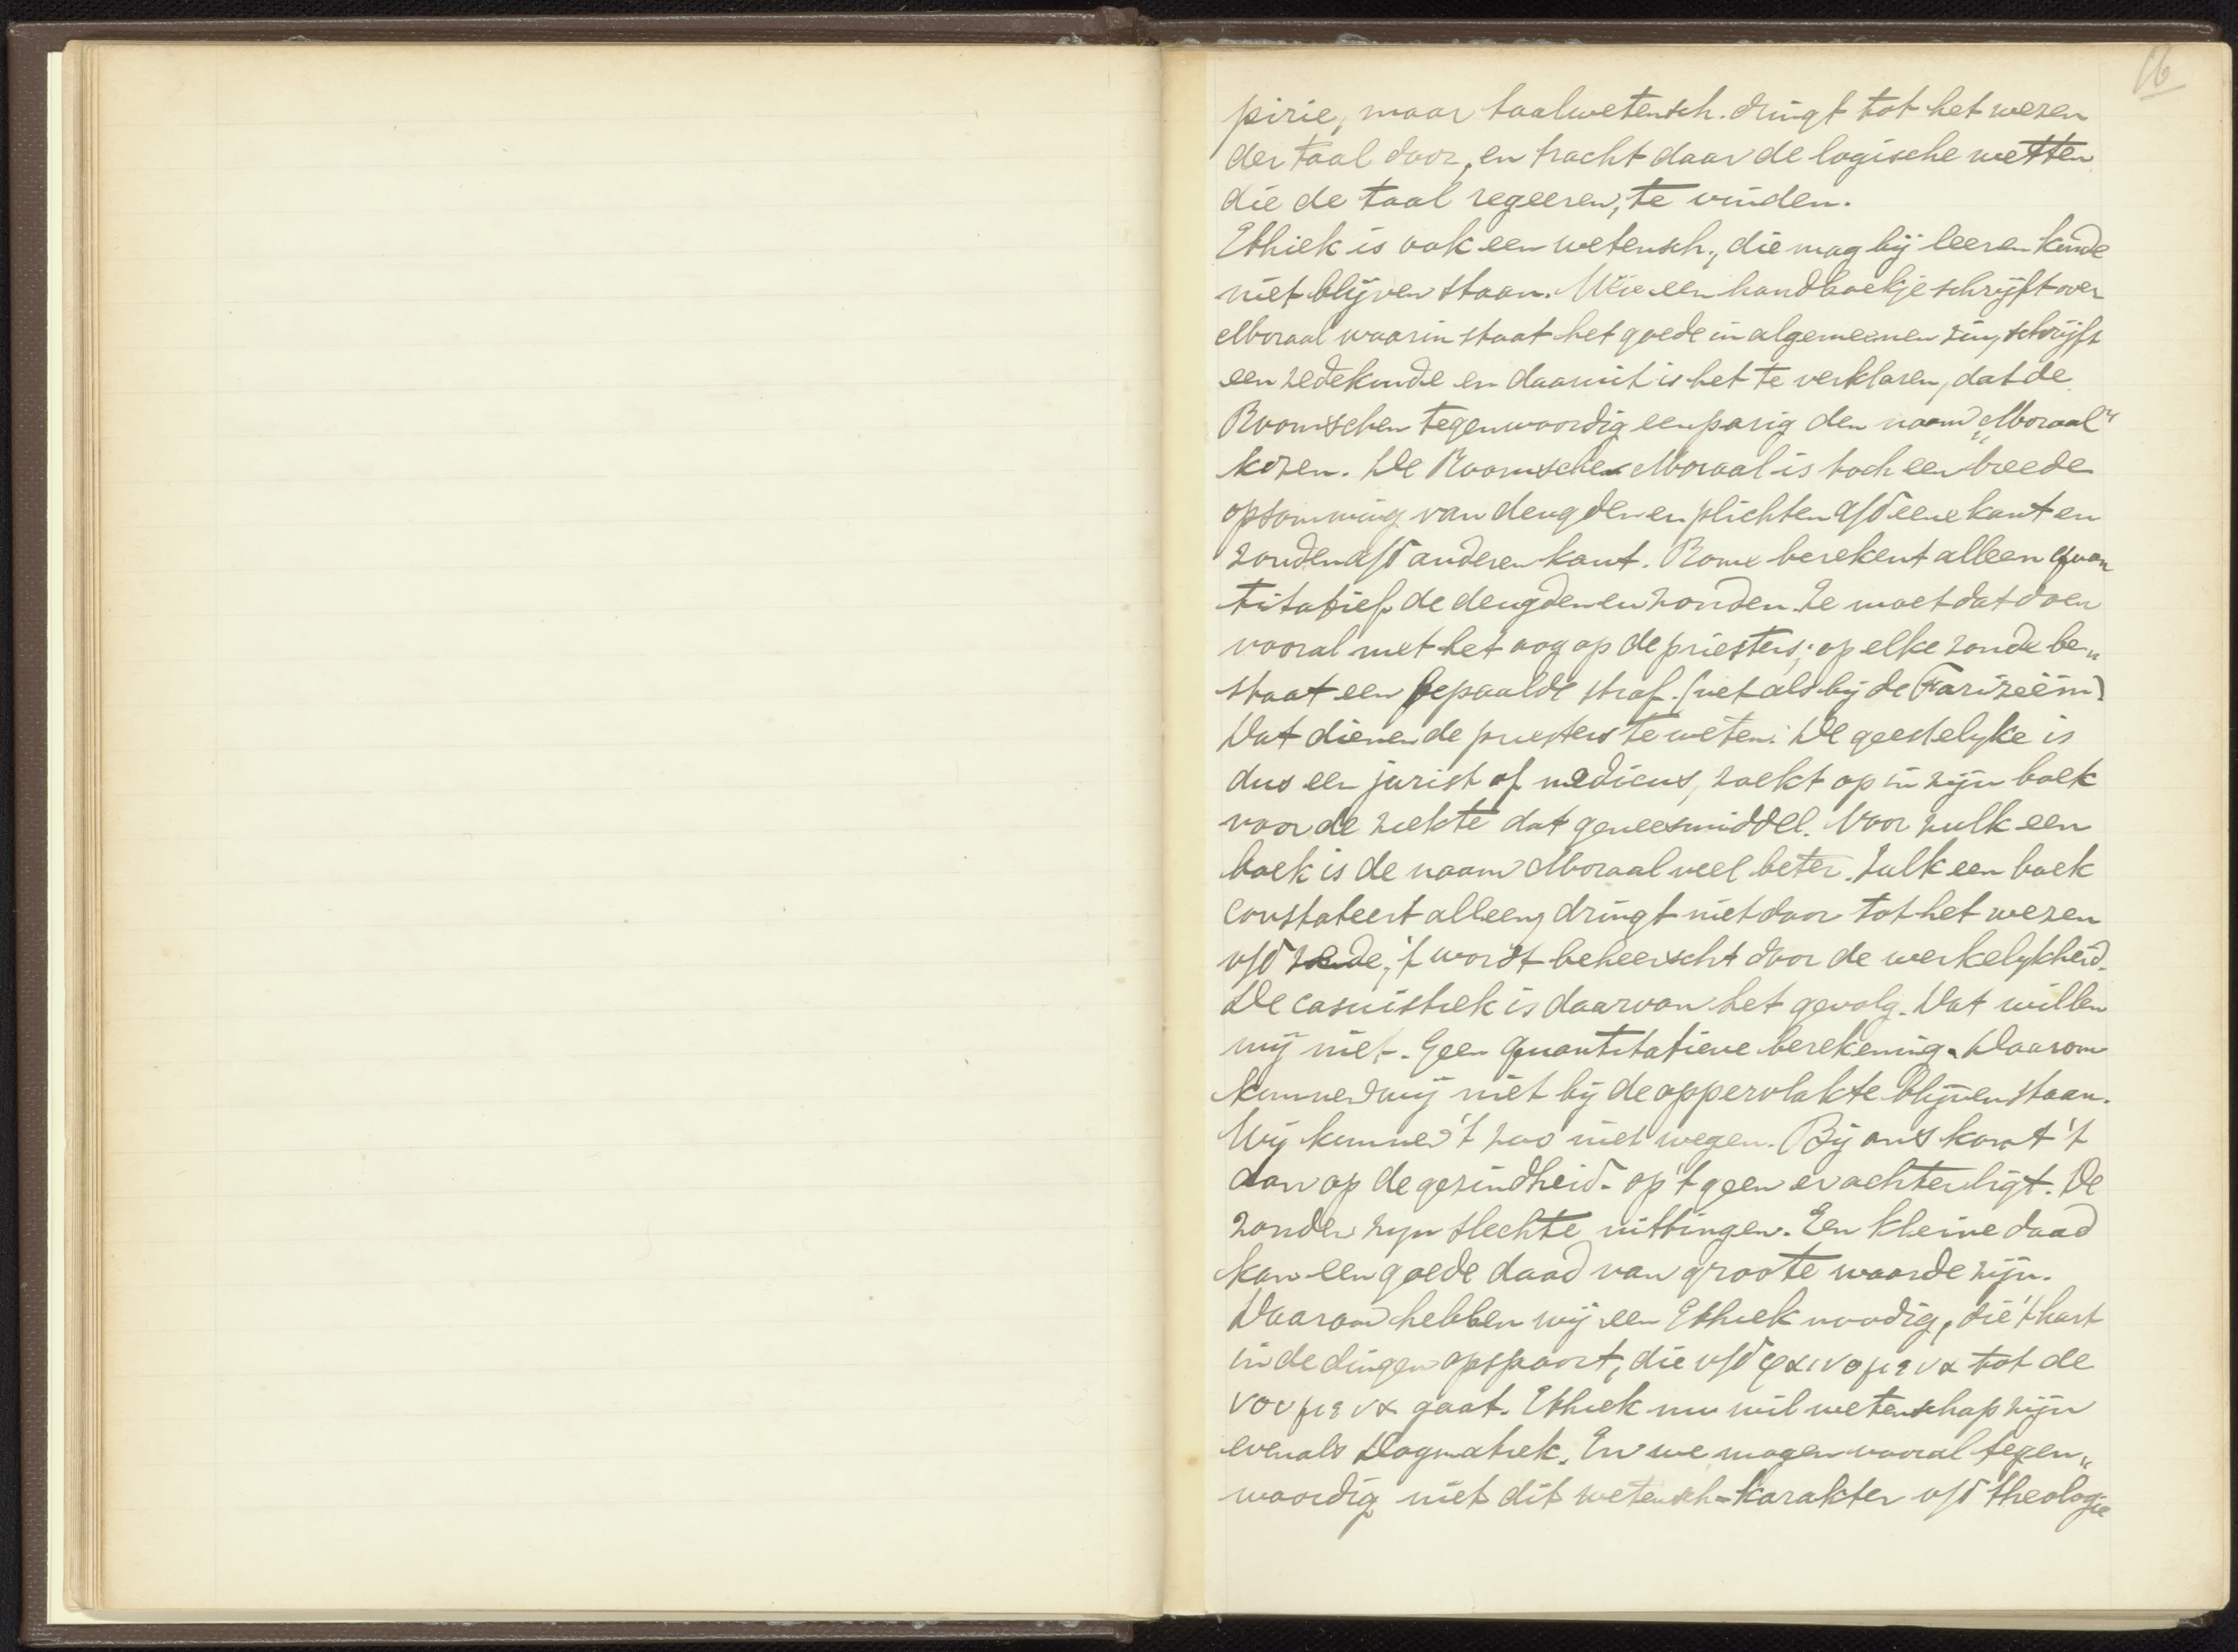 16
pirie, maar taalwetensch. dringt tot het wezen
der taal door, en tracht daar de logische wetten
die de taal regeeren, te vinden.
Ethiek is ook een wetensch., die mag bij leer en kunde
niet blijven staan. Wie een handboekje schrijft over
Moraal waarin staat het goede in algemeenen zin, schrijft
een zedekunde en daaruit is het te verklaren, dat de
Roomschen tegenwoordig eenparig den naam „Moraal"
kozen. De Roomsche Moraal is toch een breede
opsomming van deugden en plichten a/d eene kant en
zonden a/d anderen kant. Rome berekent alleen quan
titatief de deugden en zonden. Ze moet dat doen
vooral met het oog op de priesters; op elke zonde be„
staat een bepaalde straf. (net als bij de Farizeën)
Dat dienen de priesters te weten. De geestelyke is
dus een jurist of medicus, zoekt op in zijn boek
voor de ziekte dat geneesmiddel. Voor zulk een
boek is de naam Moraal veel beter. Zulk een boek
constateert alleen, dringt niet door tot het wezen
v/d zede, 't wordt beheerscht door de werkelykheid.
De casuistiek is daarvan het gevolg. Dat willen
wij niet. Geen quantitatieve berekening. Daarom
kunnen wij niet bij de oppervlakte blijven staan.
Wij kunnen 't zoo niet wegen. Bij ons komt 't
aan op de gezindheid - op 't geen er achter ligt. De
zonden zyn slechte uittingen. Een kleine daad
kan een goede daad van groote waarde zijn.
Daarom hebben wij een Ethiek noodig, die 't hart
in de dingen opspoort, die v/d φαινομενα tot de
νουμενα gaat. Ethiek nu wil wetenschap zijn
evenals Dogmatiek. En we mogen vooral tegen„
woordig niet dit wetensch-karakter v/d theologie